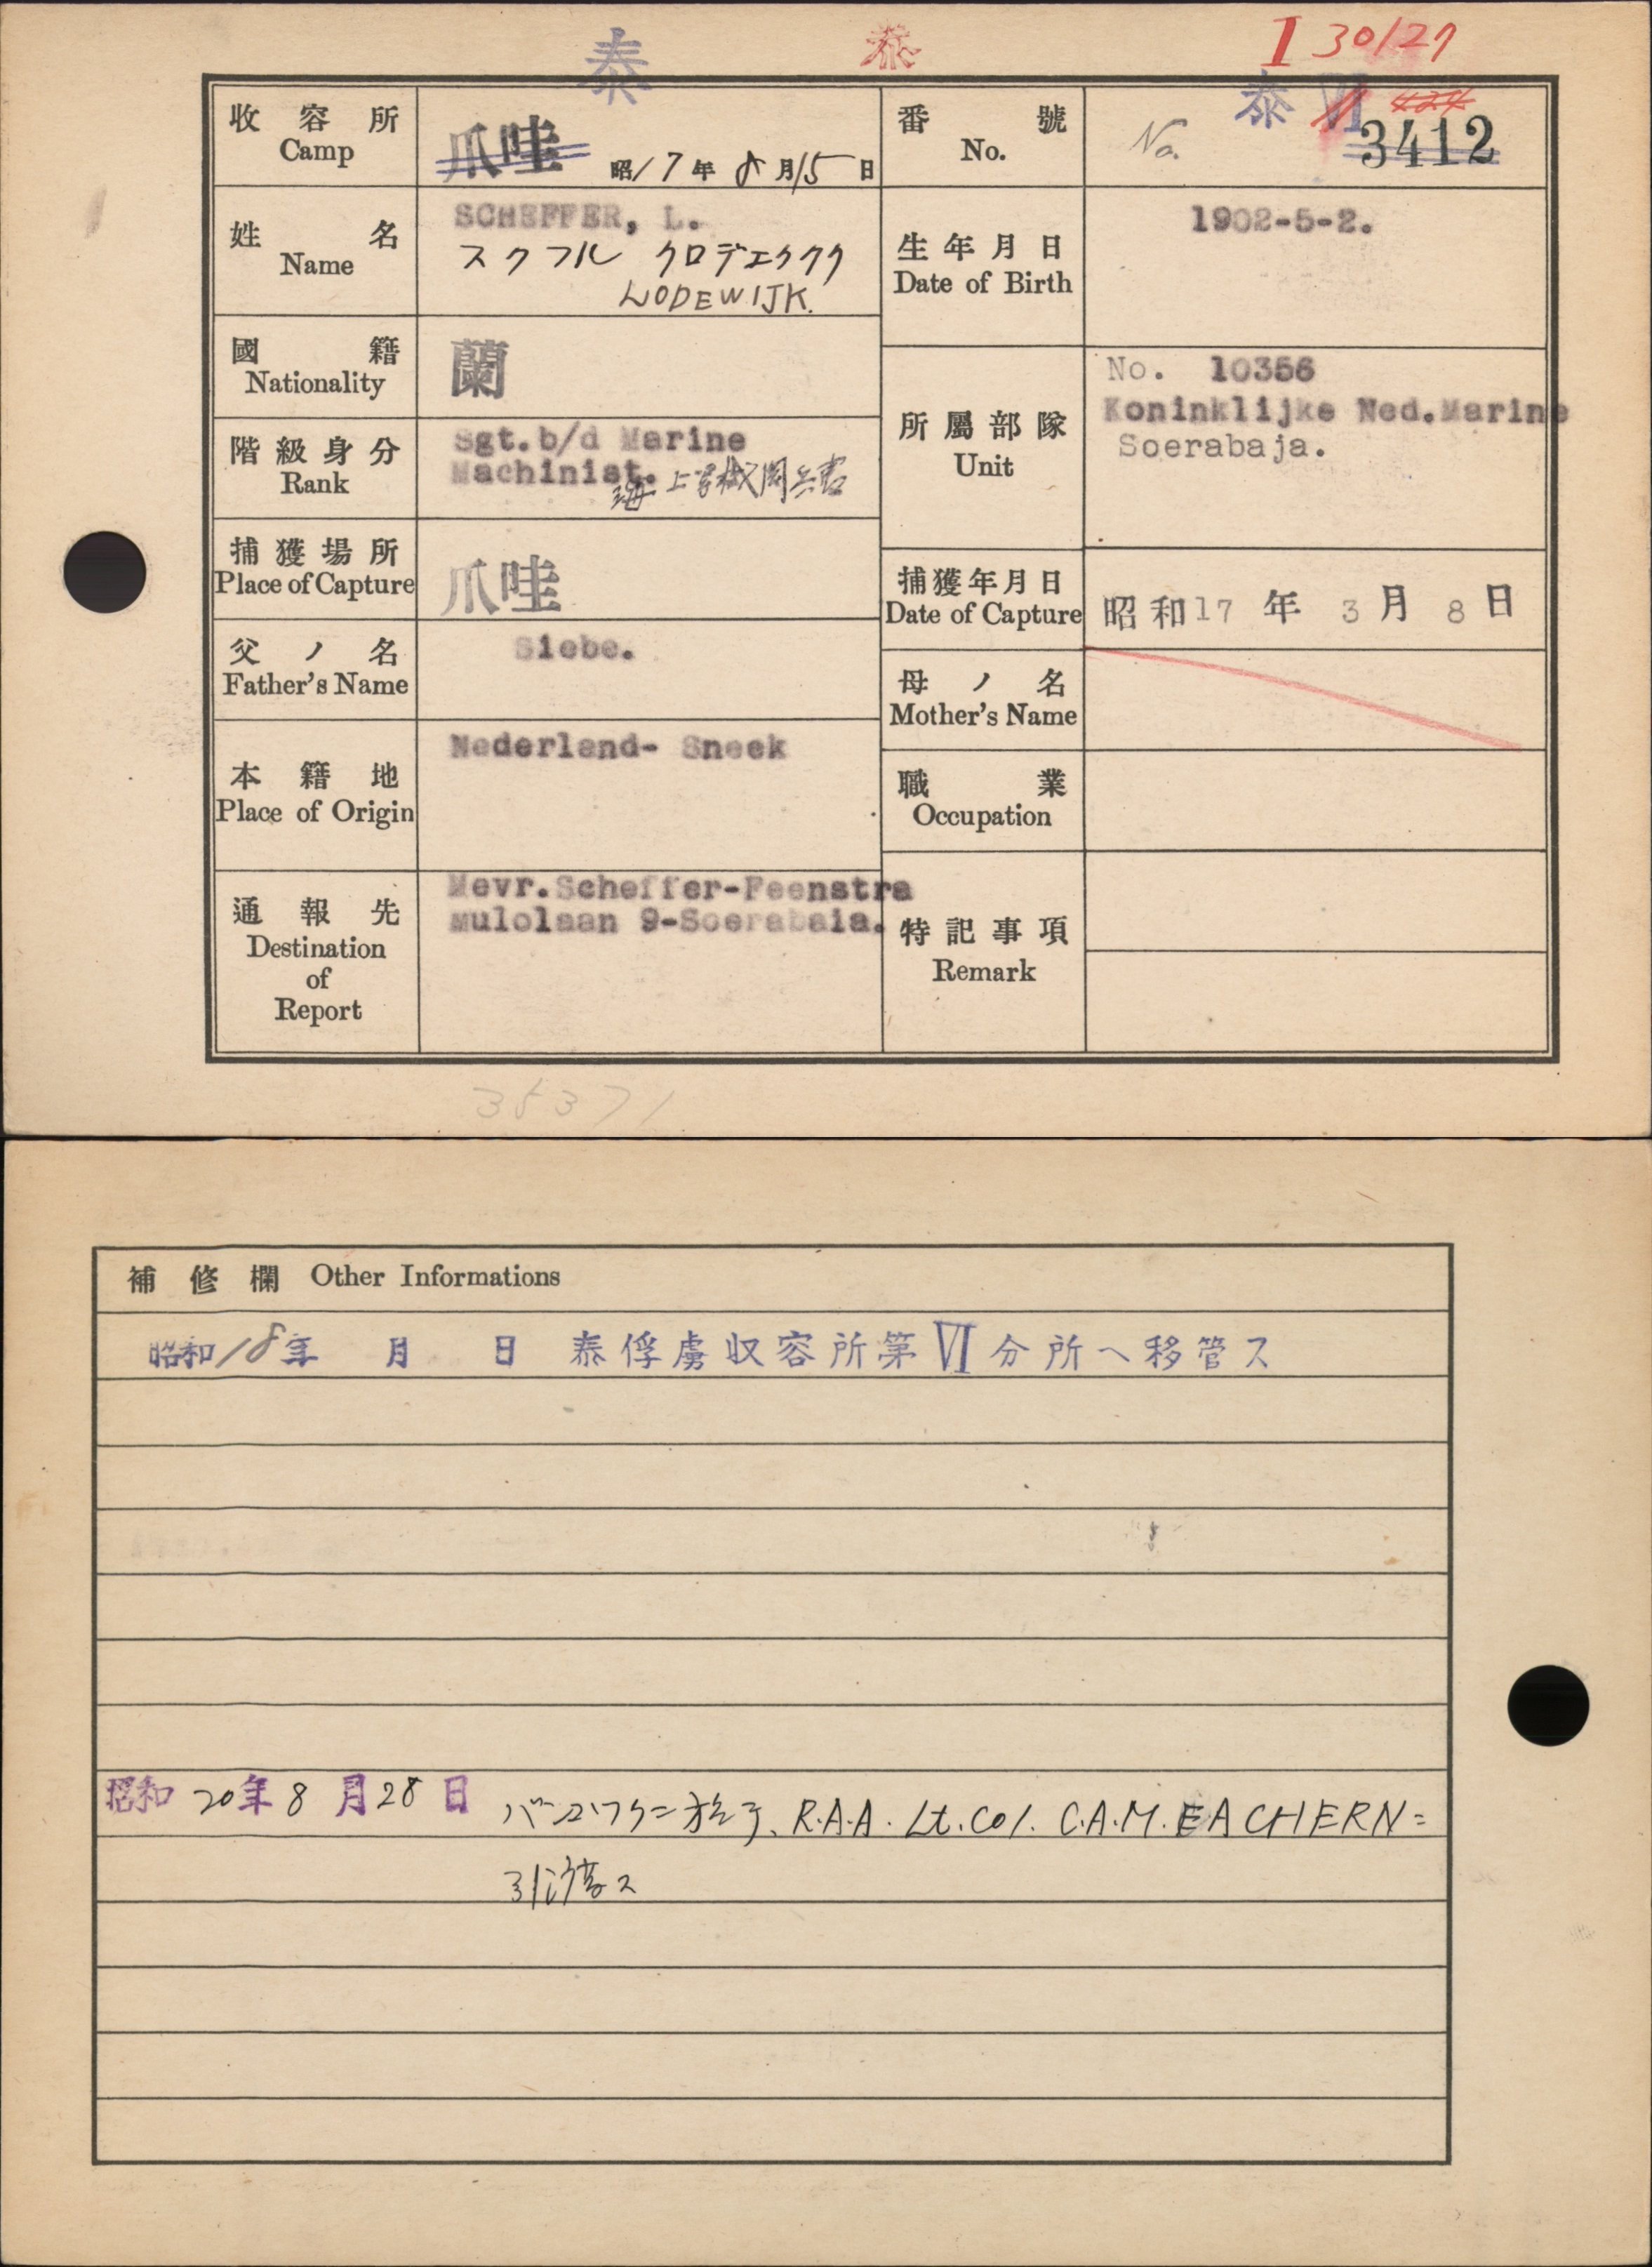 泰 泰 I 30127
收容所 Camp 爪哇 昭17年8月15日
番號 No. No. 泰 VI 424 3412
姓名 Name SCHEFFER, L.
スクフル クロデエククク
LODEWIJK.
生年月日 Date of Birth 1902-5-2.
國籍 Nationality 蘭
階級身分 Rank Sgt. b/d Marine
Machinist. 海上等機関兵曹
所屬部隊 Unit No. 10356
Koninklijke Ned. Marine
Soerabaja.
捕獲場所 Place of Capture 爪哇
捕獲年月日 Date of Capture 昭和17年3月8日
父ノ名 Father's Name Siebe.
母ノ名 Mother's Name
本籍地 Place of Origin Nederland- Sneek
職業 Occupation
通報先 Destination of Report Mevr. Scheffer-Feenstra
mulolaan 9-Soerabaia.
特記事項 Remark
35371
補修欄 Other Informations
昭和18年 月 日 泰俘虜収容所第VI分所へ移管ス
昭和20年8月28日 バンコックニ於テ、R.A.A. Lt. Col. C.A.M. EACHERN ニ
引渡ス